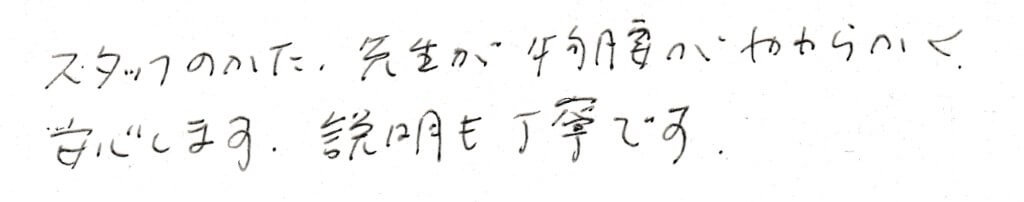 スタッフのかた、先生が物腰がやわらかく、
安心します。説明も丁寧です。